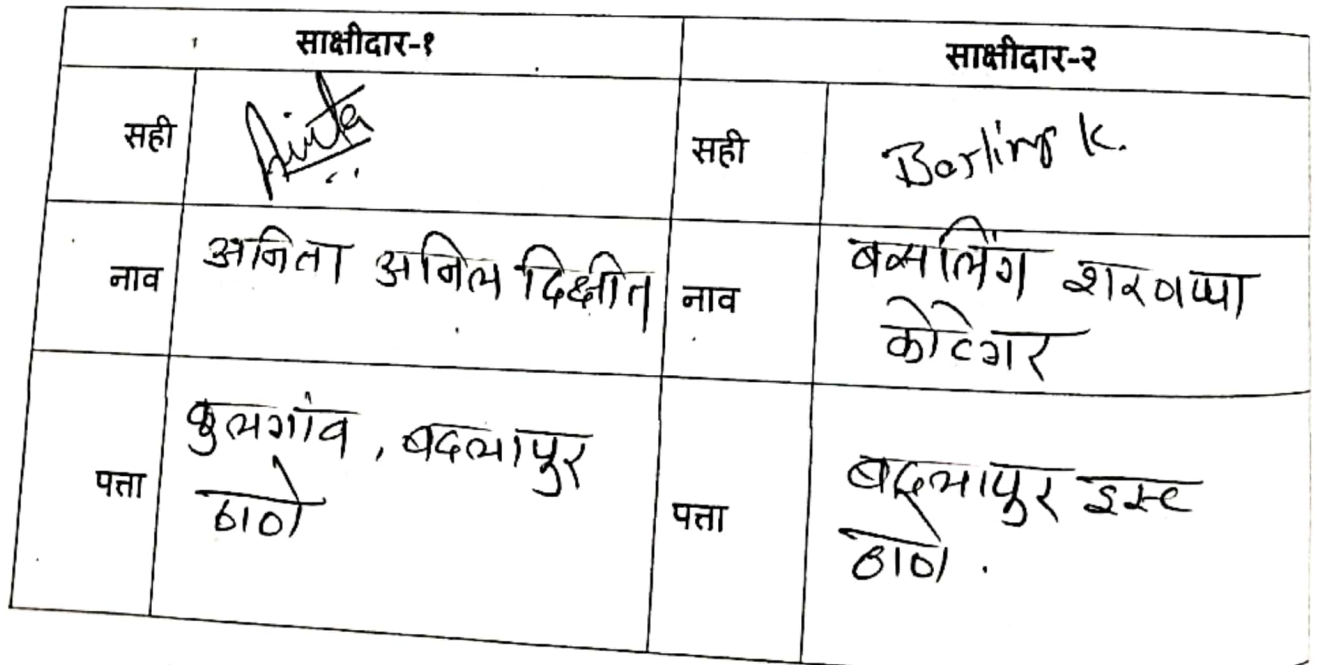 साक्षीदार-१ साक्षीदार-२
सही सही Basling K.
नाव अनिता अनिल दिक्षीत नाव बसलिंग शरणप्पा
कोटेगर
पत्ता कुलगांव, बदलापुर
ठाणे
पत्ता बदलापुर इस्ट
ठाणे.